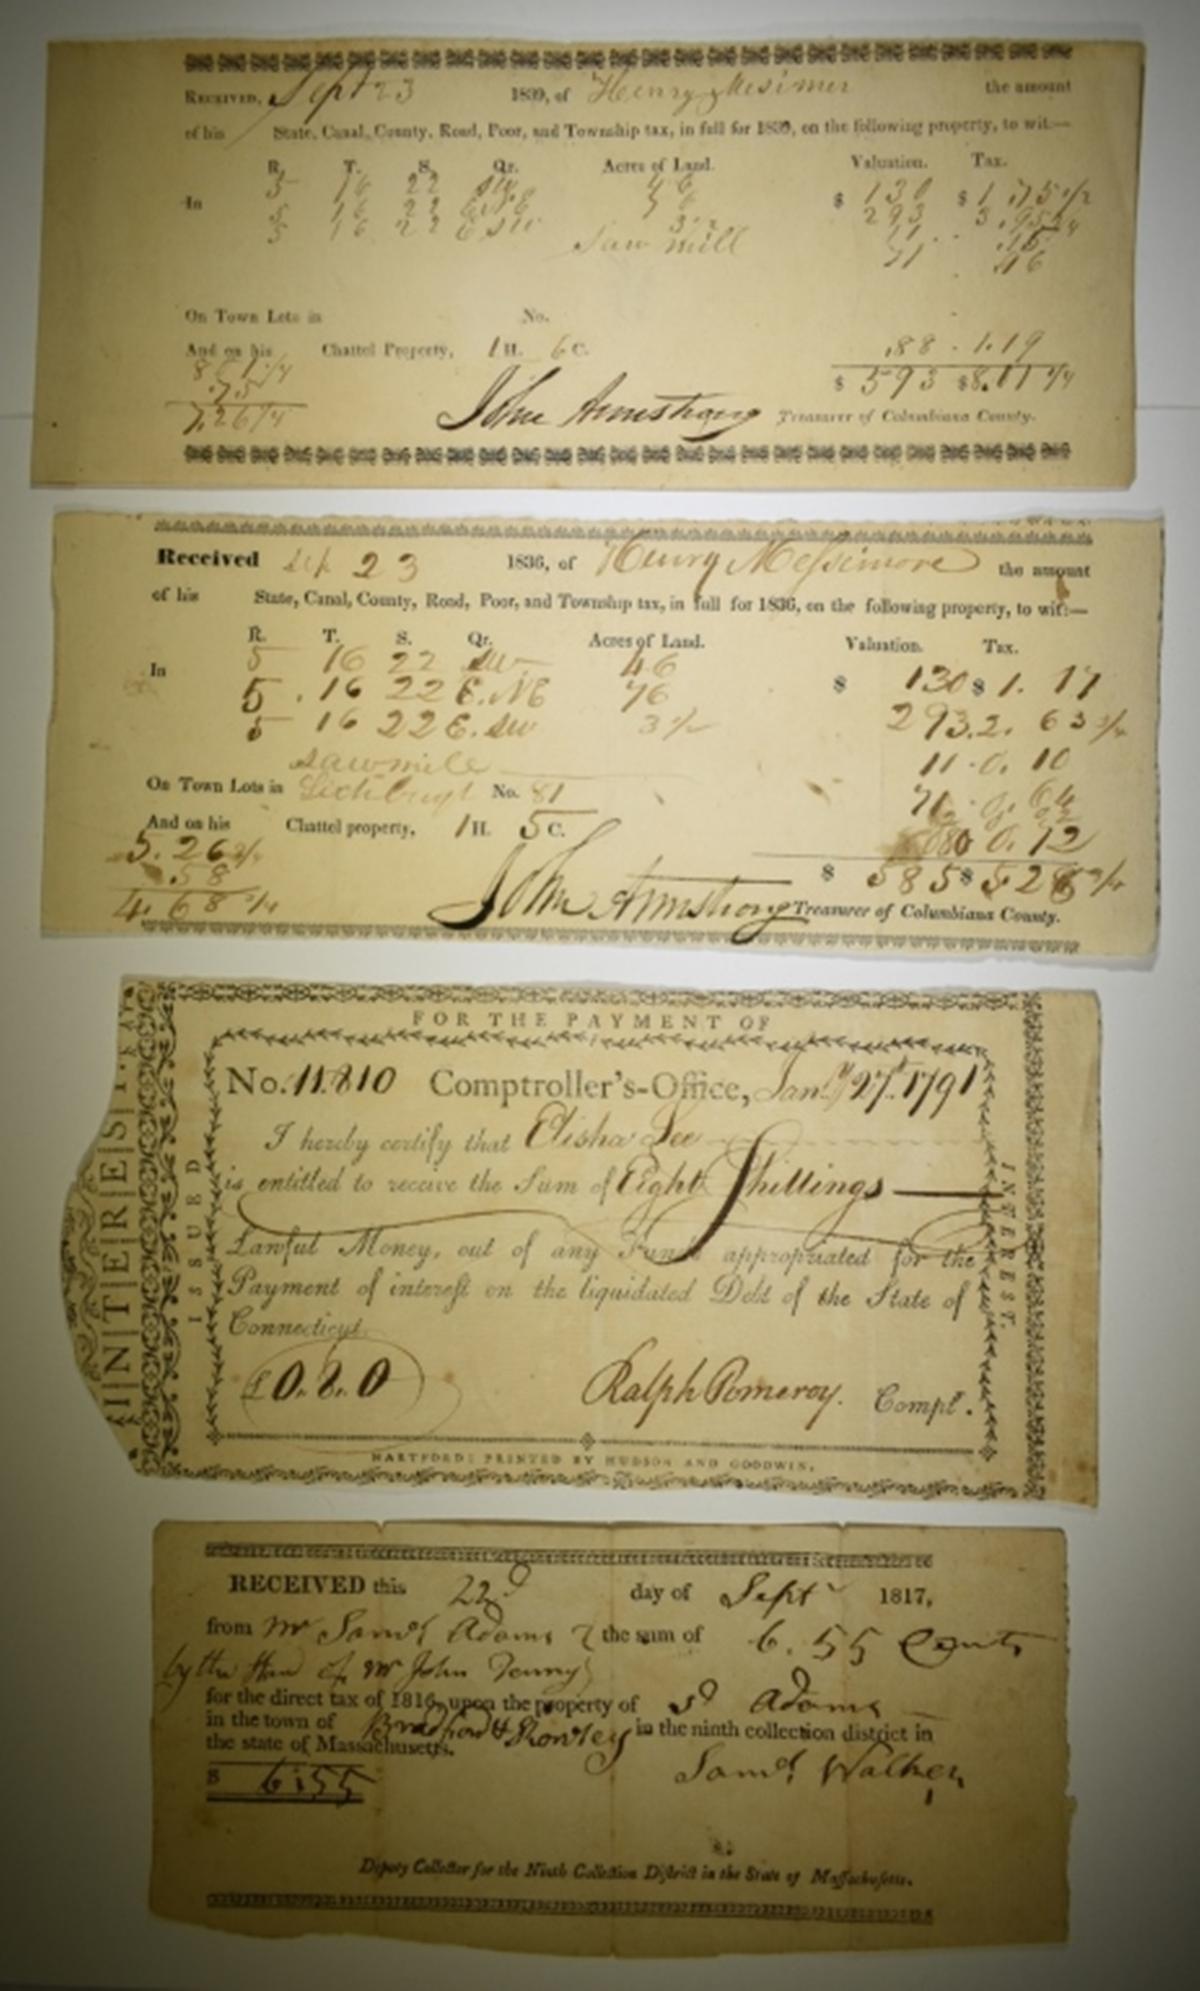 RECEIVED, Sept 23 1839, of Henry Mesimer the amount
of his State, Canal, County, Road, Poor, and Township tax, in full for 1839, on the following property, to wit:—
R. T. S. Qr. Acres of Land. Valuation. Tax.
In 5 16 22 SW 46 $ 130 $ 1.75 1/2
5 16 22 E NE 76 293 3.95
5 16 22 E SW 3 1/2 11 .15
Saw mill 71
On Town Lots in No.
And on his Chattel Property, 1 H. 6 C. .88 - 1.19
8 01 1/4 $ 593 $8.01 1/4
.75
7.26 1/4 John Armstrong Treasurer of Columbiana County.
Received Sep 23 1836, of Henry Messimore the amount
of his State, Canal, County, Road, Poor, and Township tax, in full for 1836, on the following property, to wit:—
R. T. S. Qr. Acres of Land. Valuation. Tax.
In 5 16 22 SW 46 $ 130 $ 1. 17
5 16 22 E. NE 76 293. 2. 63 3/4
5 16 22 E. SW 3 1/2 11. 0. 10
sawmill 71. 0. 64
On Town Lots in No. 81
And on his Chattel property, 1 H. 5 C. 080 0. 12
5. 26 3/4 $ 585 $ 5.26 3/4
.58
4. 68 3/4 John Armstrong Treasurer of Columbiana County.
FOR THE PAYMENT OF
INTEREST
ISSUED
INTEREST.
No. 11.810 Comptroller's-Office, Jany 27t. 1791
I hereby certify that Elisha Lee
is entitled to receive the Sum of Eight Shillings
Lawful Money, out of any Funds appropriated for the
Payment of interest on the liquidated Debt of the State of
Connecticut.
£ 0. 8. 0 Ralph Pomeroy. Compt.
HARTFORD: PRINTED BY HUDSON AND GOODWIN.
RECEIVED this 22d day of Sept 1817,
from Mr Saml Adams the sum of 6. 55 Cents
by the Han of Mr John Tenny
for the direct tax of 1816, upon the property of sd Adams
in the town of Bradford & Rowley in the ninth collection district in
the state of Massachusetts.
$ 6:55 Saml Walker
Deputy Collector for the Ninth Collection District in the State of Massachusetts.